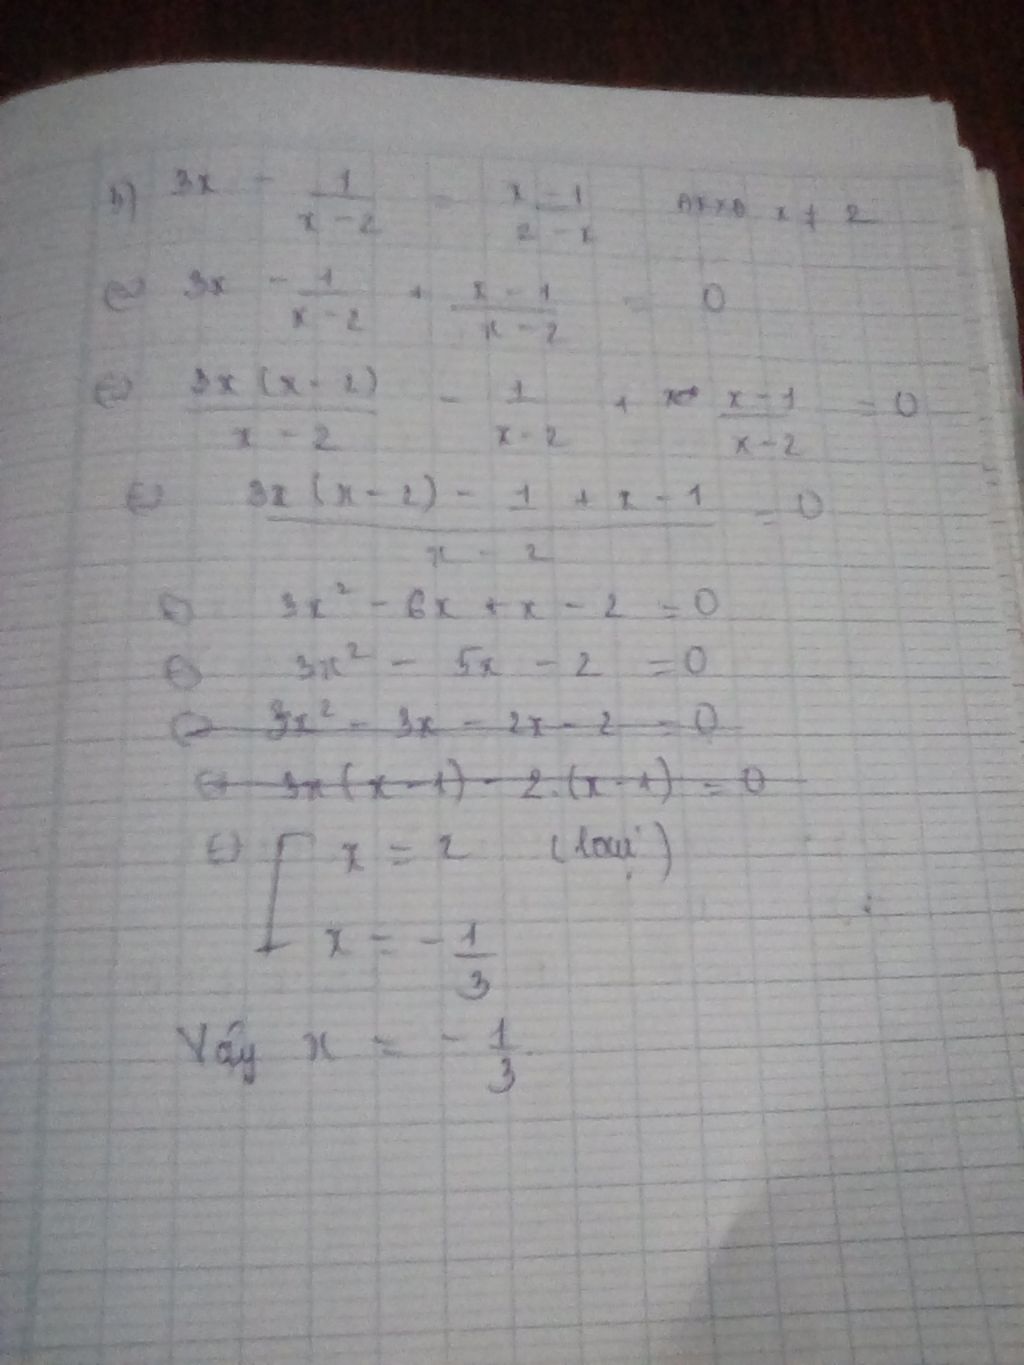 b) 3x - 1/(x-2) = (x-1)/(2-x) ĐKXĐ x ≠ 2
(=) 3x - 1/(x-2) + (x-1)/(x-2) = 0
(=) 3x(x-2)/(x-2) - 1/(x-2) + (x-1)/(x-2) = 0
(=) (3x(x-2) - 1 + x - 1)/(x-2) = 0
(=) 3x² - 6x + x - 2 = 0
(=) 3x² - 5x - 2 = 0
(=) 3x² - 3x - 2x - 2 = 0
(=) 3x(x-1) - 2.(x-1) = 0
(=) [ x = 2 (loại)
x = -1/3
Vậy x = -1/3